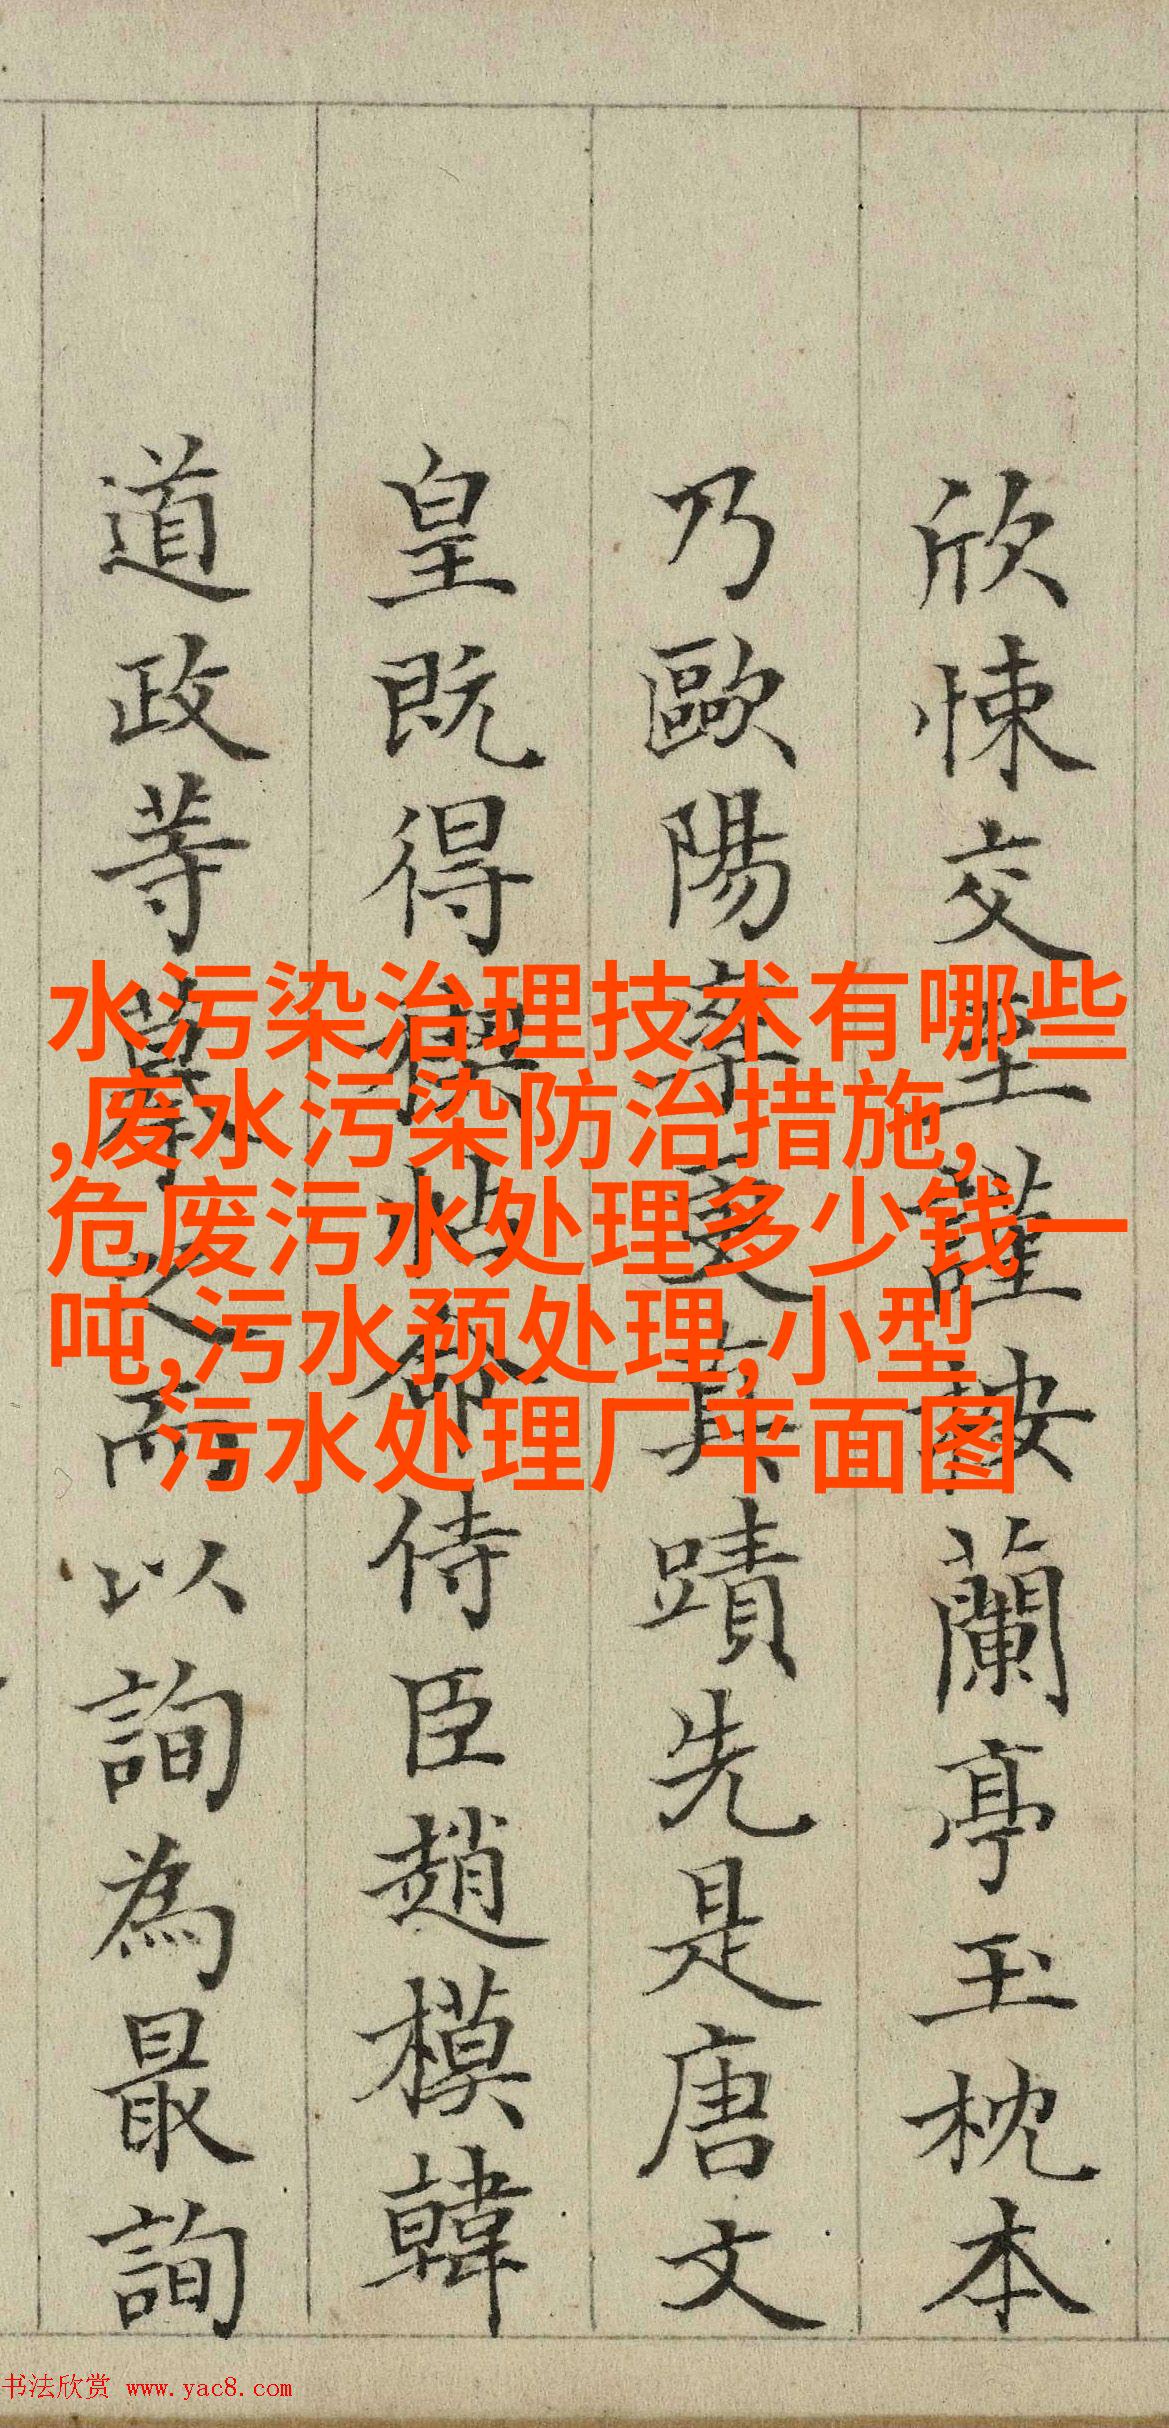 欣悚交至謹按蘭亭玉枕本
乃歐陽率更真蹟先是唐文
皇既得禊帖命侍臣趙模韓
道政等摹之而以詢為最詢
水污染治理技术有哪些
,废水污染防治措施,
危废污水处理多少钱一
吨,污水预处理,小型
污水处理厂平面图
书法欣赏 www.yac8.com